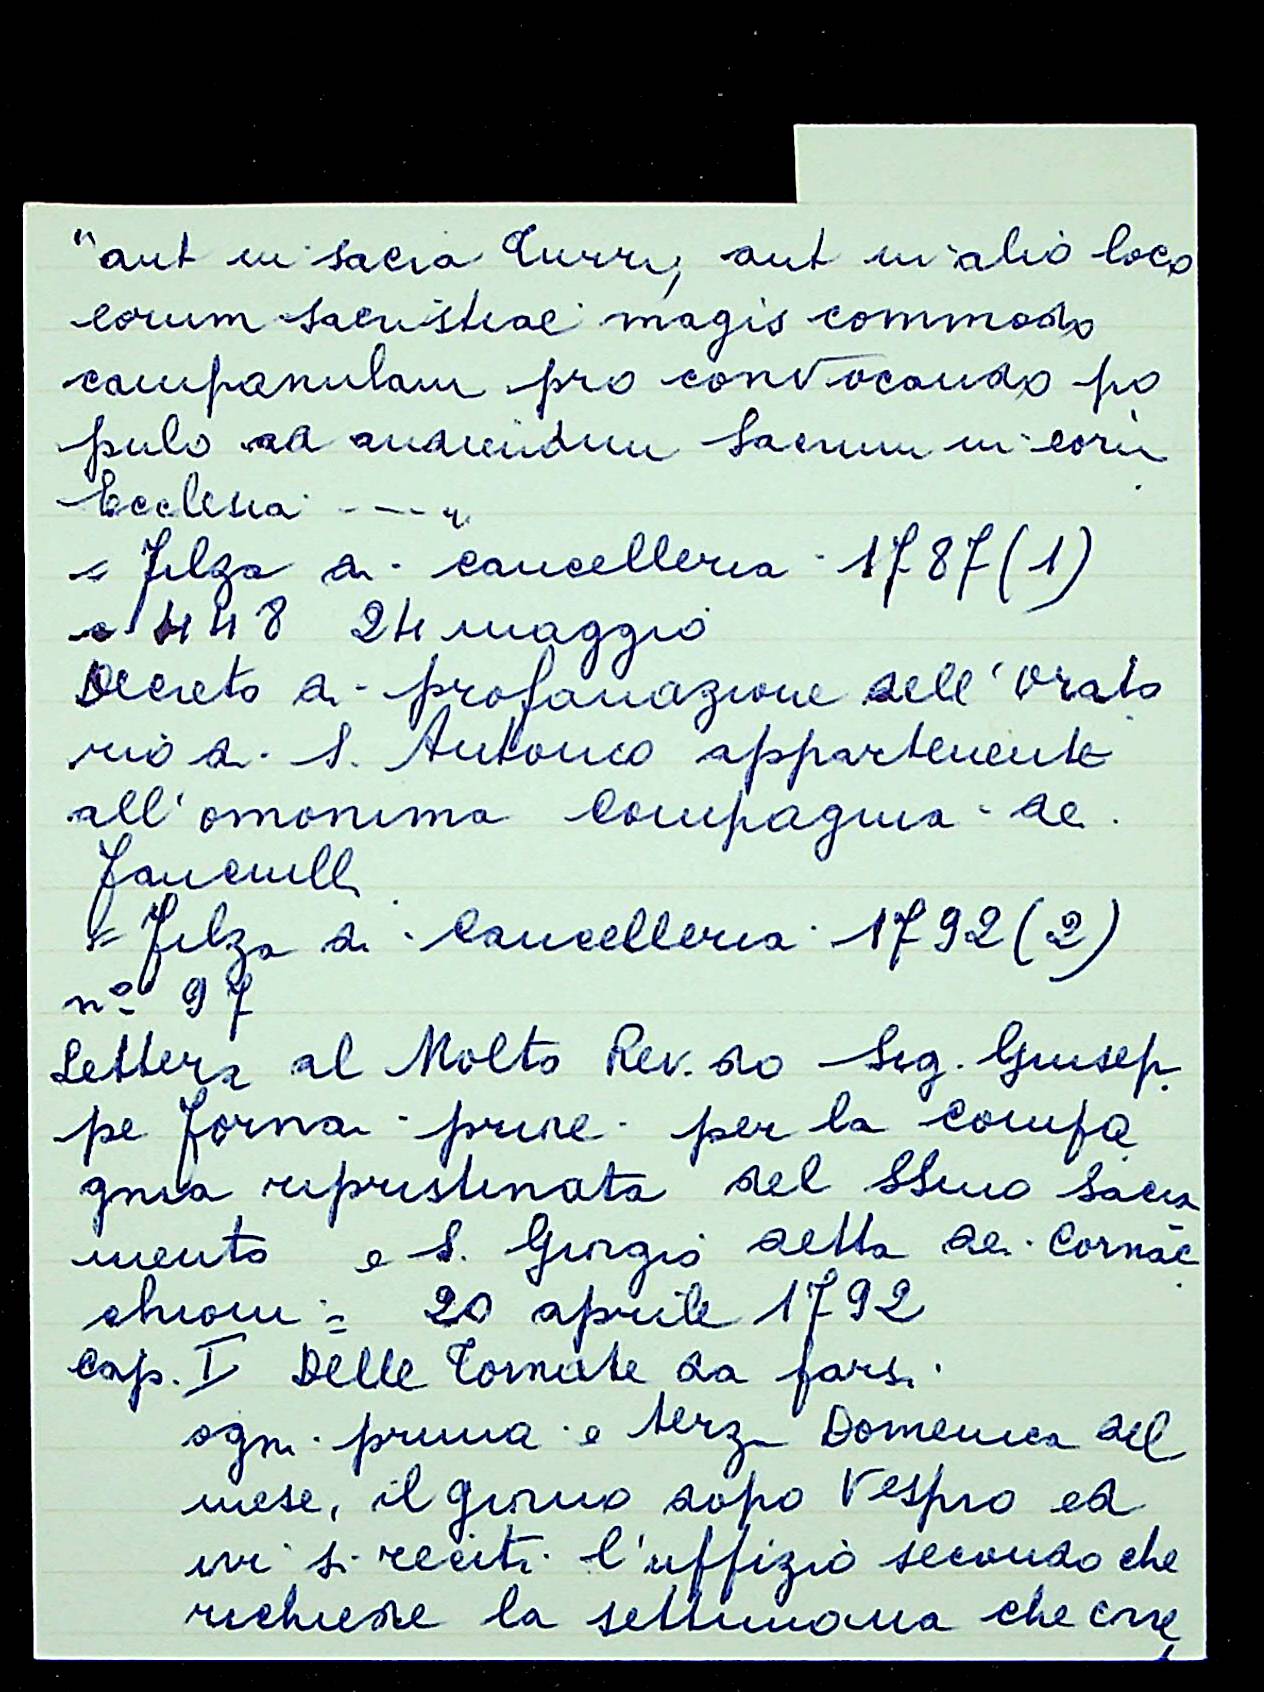 "aut in sacra Turri, aut in alio loco
eorum sacristiae magis commodo
campanulam pro convocando po
pulo ad audiendum Sacrum in eoru
Ecclesia ----"
= Filza di cancelleria 1787 (1)
c 448 24 maggio
Decreto di profanazione dell'Orato
rio di S. Antonio appartenente
all'omonima Compagnia de
Fanciulli
= Filza di Cancelleria 1792 (2)
nº 97
Lettera al Molto Rev.do Sig. Giusep
pe Fornai priore per la Compa
gnia ripristinata del SSmo Sacra
mento e S. Giorgio detta dei Cornac
chioni = 20 aprile 1792
Cap. I Delle Tornate da farsi
ogni prima e terza Domenica del
mese, il giorno dopo Vespro ed
ivi si reciti l'uffizio secondo che
richiede la settimana che